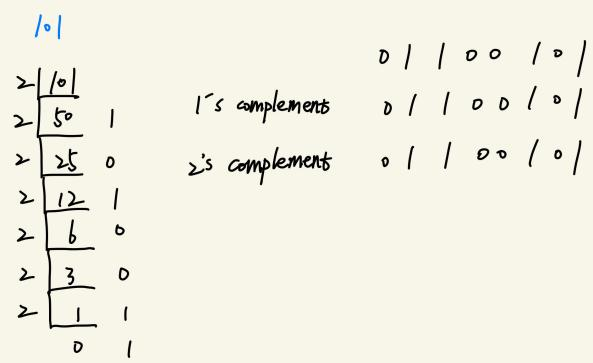 101
2 101
2 50 1
2 25 0
2 12 1
2 6 0
2 3 0
2 1 1
0 1
0 1 1 0 0 1 0 1
1's complement 0 1 1 0 0 1 0 1
2's complement 0 1 1 0 0 1 0 1